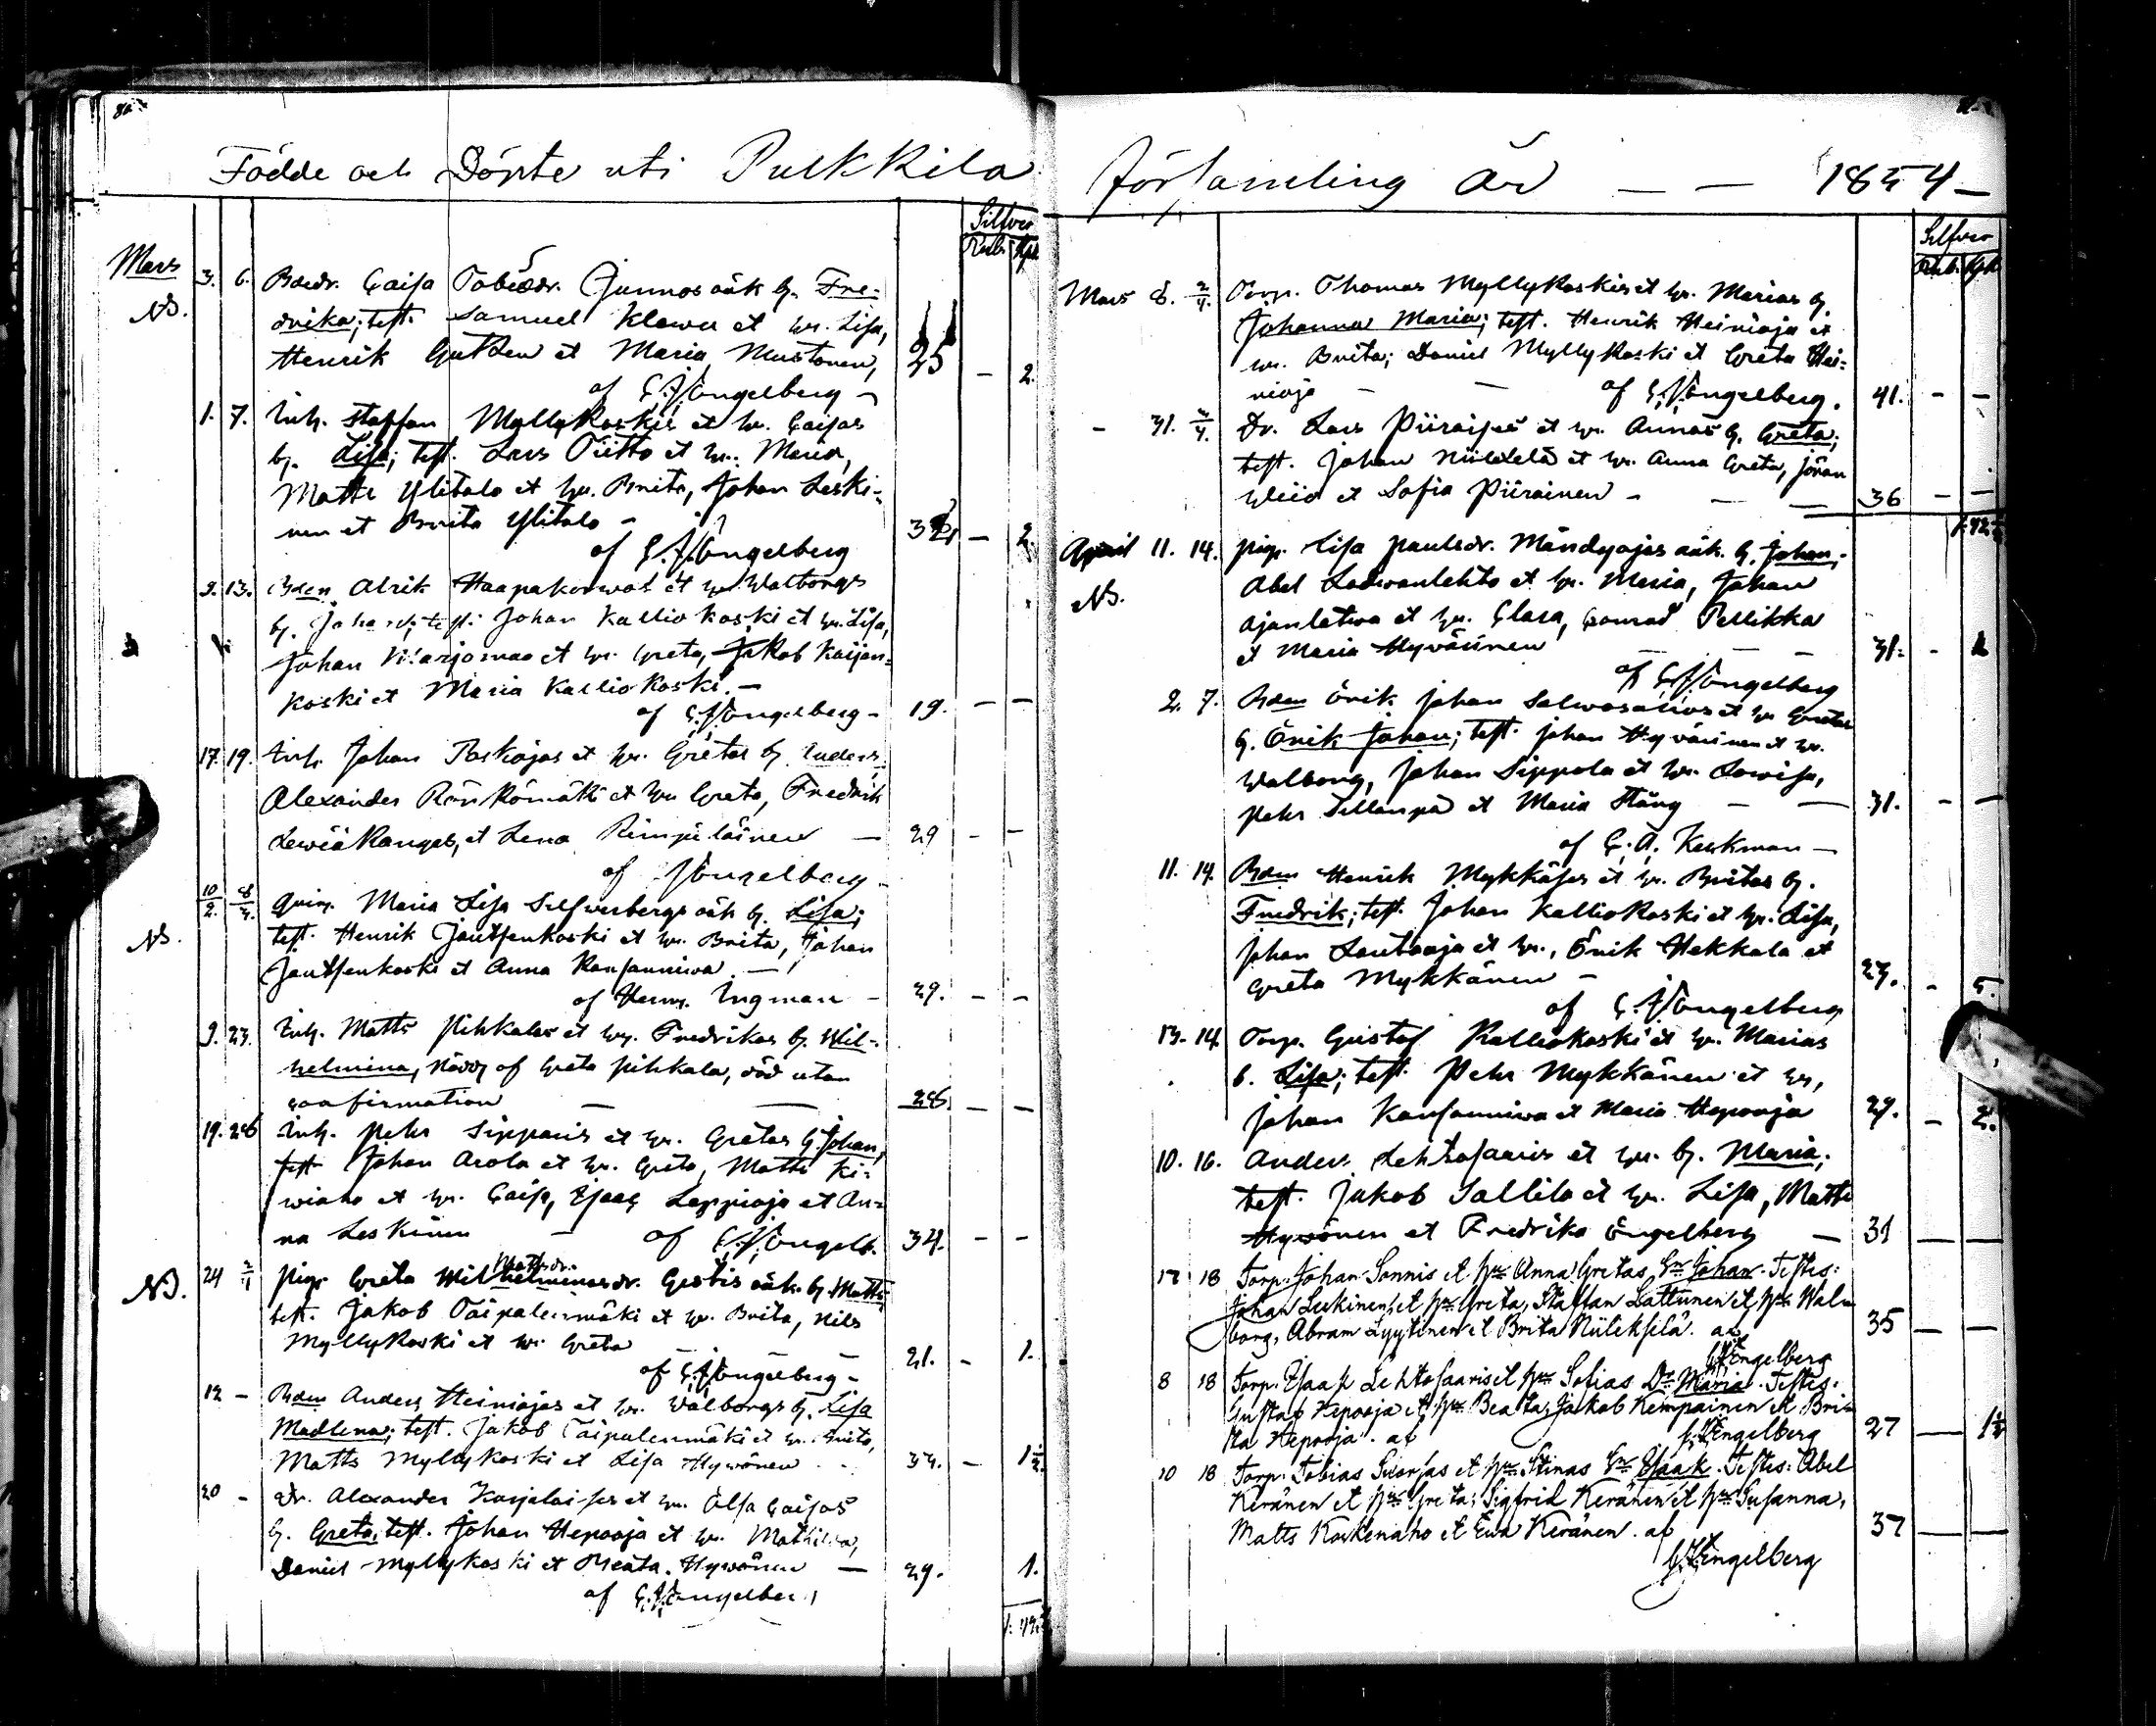 Födde och Döpte uti Pulkkila
Silfver
Rub. Kpk
Mars 3. 6. Bdr. Caisa Tobiædr. Junnos oäk b. Fre-
NB. drika; test. Samuel Klawu et hr. Lisa,
Henrik et Maria Mustonen, 25 – 2.
af C.J. Engelberg –
1. 7. Inh. Staffan Myllykoskis et hr. Caisas
b. Lisa; test. Lars Tiitto et hr. Maria,
Matts Ylitalo et hr. Brita, Johan Leski-
nen et Brita Ylitalo – – 2.
af C.J. Engelberg
9. 13. Bden Alrik Haapakorwas et hr. Walborgs
b. Johan; test. Johan Kalliokoski et hr. Lisa,
Johan Marjomaa et hr. Greta, Jakob Kaijan-
koski et Maria Kalliokoski. –
af C.J. Engelberg – 19. – –
17. 19. Inh. Johan Paskojas et hr. Gretas b. Anders;
Alexander Rönkömäki et hr. Greta, Fredrik
Lewiäkangas, et Lena Rimpiläinen – 29 – –
af J. Engelberg –
10/2. Qvinn. Maria Lisa Silfwerbergs oäk b. Lisa;
NB. test. Henrik Jautsenkoski et hr. Brita, Johan
Jautsenkoski et Anna Kansanniwa. –
af Henr. Ingman – 29. – –
9. 23. Inh. Matts Pihkalas et hr. Fredrikas b. Wil-
helmina, nöddp af Greta Pihkala, död utan
confirmation – – 28. – –
19. 26 Inh. Pehr Sipparis et hr. Gretas b. Johan,
test. Johan Arola et hr. Greta, Matts Ki-
wiaho et hr. Caisa, Esaac Leppioja et An-
na Leskinen – af C.J. Engelb. 34. – –
24 Matts dr.
NB. pig. Greta Wilhelminas dr. Gestis oäk. b. Matts
test. Jakob Taipalenmäki et hr. Brita, Nils
Myllykoski et hr. Greta – 21. – 1.
af C.J. Engelberg –
12 – Bden Anders Heiniojas et hr. Walborgs b. Lisa
Madlena; test. Jakob Taipalenmäki et hr. Brita,
Matts Myllykoski et Lisa Hywönen – 1½.
20 – Dr. Alexander Karjalaises et hr. Ulla Caisas
b. Greta; test. Johan Hepooja et hr. Mathilda,
Daniel Myllykoski et Beata Hywönen – 29. 1.
af C.J. Engelberg
församling år – – 1854 –
Silfver
Rub. Kpk
Mars 8. 2/4. Torp. Thomas Myllykoskis et hr. Marias b.
Johanna Maria; test. Henrik Heinioja et
hr. Brita; Daniel Myllykoski et Greta Hei-
nioja – – af C.J. Engelberg. 41. – –
– 31. Dr. Lars Piiraises et hr. Annas b. Greta;
test. Johan Niileksela et hr. Anna Greta, Jöran
Weiio et Sofia Piirainen – – – 36 – –
April 11. 14. pig. Lisa Paulsdr. Mändyojas oäk. b. Johan;
NB. Abel Ladwanlehto et hr. Maria, Johan
Ajanlatwa et hr. Clara, Conrad Pellikka
et Maria Hyväринen – – – 31. –
af C.J. Engelberg
2. 7. Bden Erik Johan Salwosaiwos et hr. Gretas
b. Erik Johan; test. Johan Hyvärinen et hr.
Walborg, Johan Sippola et hr. Lowisa,
Pehr Sillanpä et Maria Stång – – 31. – –
af C.A. Keckman –
11. 14. Bden Henrik Mykkäses et hr. Britas b.
Fredrik; test. Johan Kalliokoski et hr. Lisa,
Johan Lautaoja et hr., Erik Hekkala et
Greta Mykkänen – 23. – 5.
af C.J. Engelberg
13. 14. Torp. Gustaf Kalliokoski et hr. Marias
b. Lisa; test. Pehr Mykkänen et hr,
Johan Kansanniwa et Maria Hepooja 29. – 2.
10. 16. Anders Lehtosaaris et hr. b. Maria;
test. Jakob Sallila et hr. Lisa, Matts
Hywönen et Fredrika Engelberg – 31 – –
17 18 Torp. Johan Sonnis et hr Anna Gretas Gn Johan. Testes:
Johan Leckinen et hr Greta, Staffan Lattunen et hr Wal-
borg, Abram Lyytinen et Brita Niilekselä. af 35 – –
C.J. Engelberg
8 18 Torp. Esaak Lehtosaaris et hr Sofias Dr Maria. Testes:
Gustaf Hepooja et hr Beata, Jakob Kempainen et Bri-
ta Hepooja. af C.J. Engelberg 27 – 1½
10 18 Torp. Tobias Suorsas et hr Stinas Gn Esaak. Testes: Abel
Keränen et hr Greta; Sigfrid Keränen et hr Susanna,
Matts Korkenaho et Ewa Keränen. af 37 – –
C.J. Engelberg